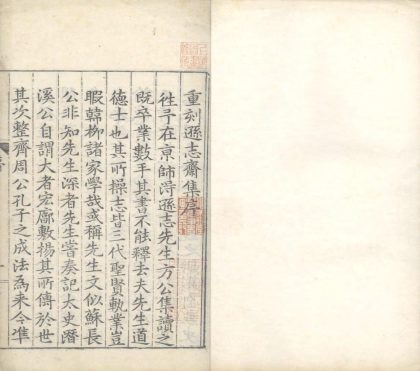 重刻遜志齋集序
往予在京師得遜志先生方公集讀之
既卒業數手其書不能釋去夫先生道
德士也其所操志皆三代聖賢軌業豈
暇韓柳諸家學哉或稱先生文似蘇長
公非知先生深者先生嘗奏記太史潛
溪公自謂大者宏廓敷揚其所儔於世
其次整齊周公孔子之成法為來今準
序